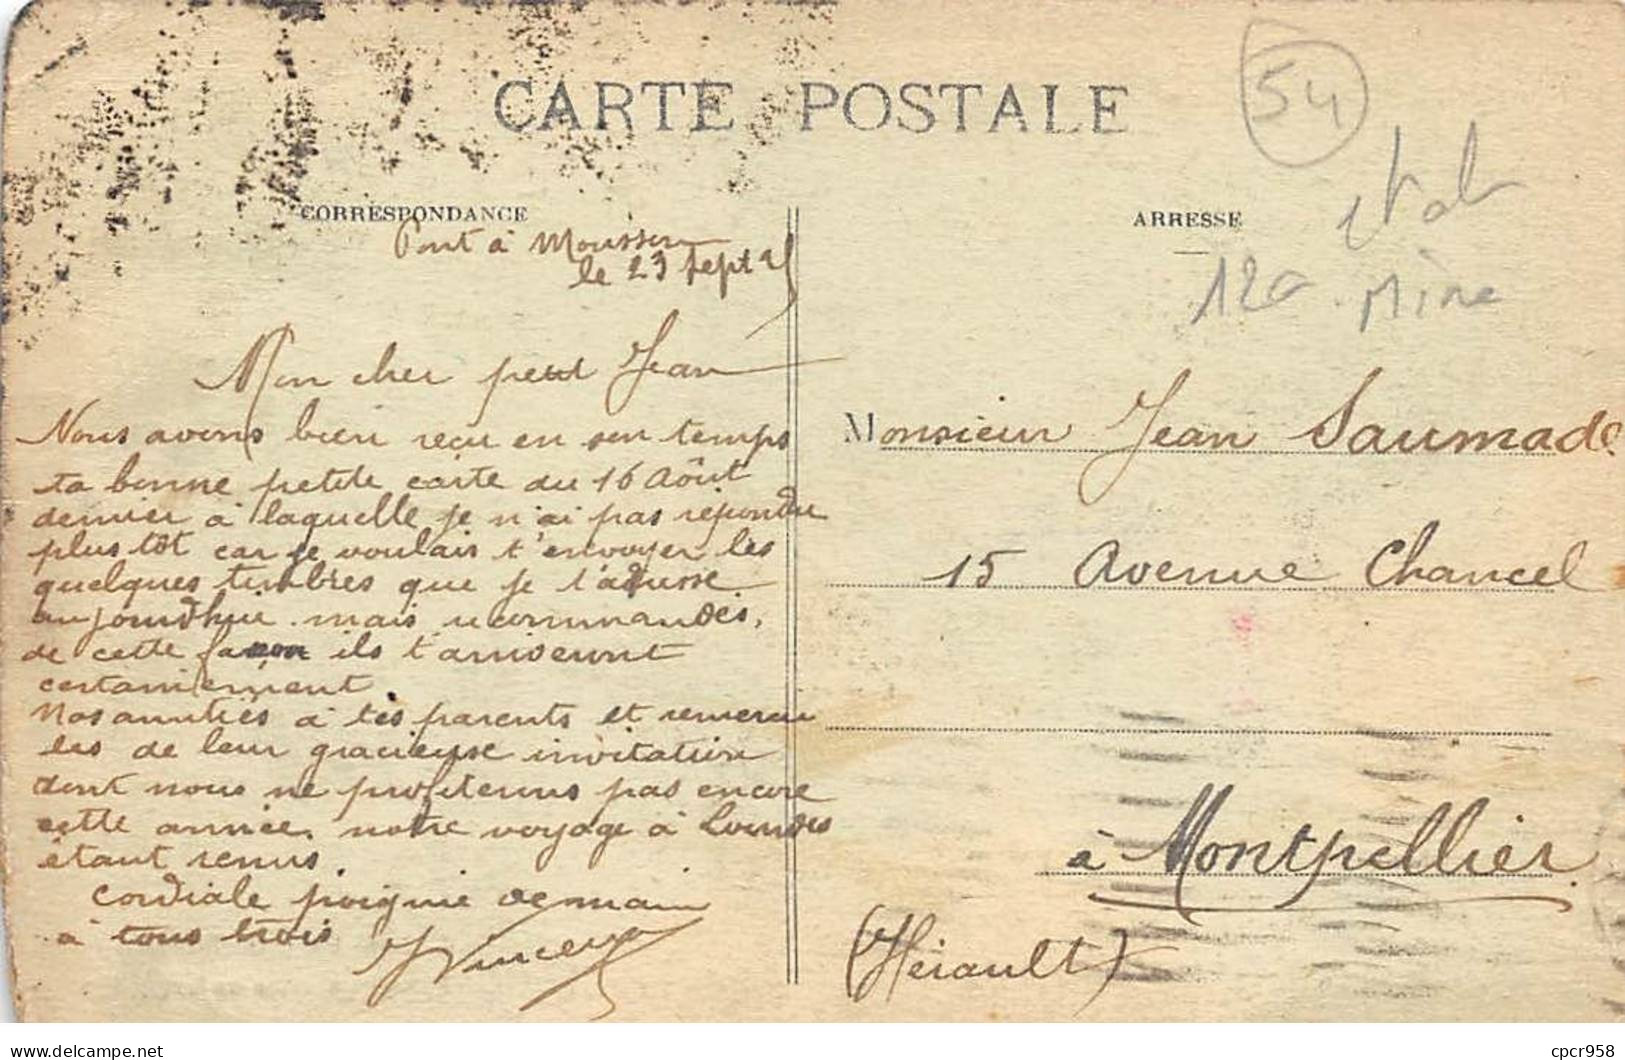 CARTE POSTALE
54
CORRESPONDANCE
Pont à Mousson
le 23 sept
Mon cher petit Jean
Nous avons bien reçu en son temps
ta bonne petite carte du 16 Août
dernier à laquelle je n'ai pas répondu
plus tôt car je voulais t'envoyer les
quelques timbres que je t'adresse
aujourd'hui mais recommandés,
de cette façon ils t'arriveront
certainement.
Nos amitiés à tes parents et remercie
les de leur gracieuse invitation
dont nous ne profiterons pas encore
cette année, notre voyage à Lourdes
étant remis.
Cordiale poignée de main
à tous trois
ARRESSE
120 Mine
Monsieur Jean Saumade
15 Avenue Chancel
à Montpellier
(Hérault)
delcampe.net
cpcr958